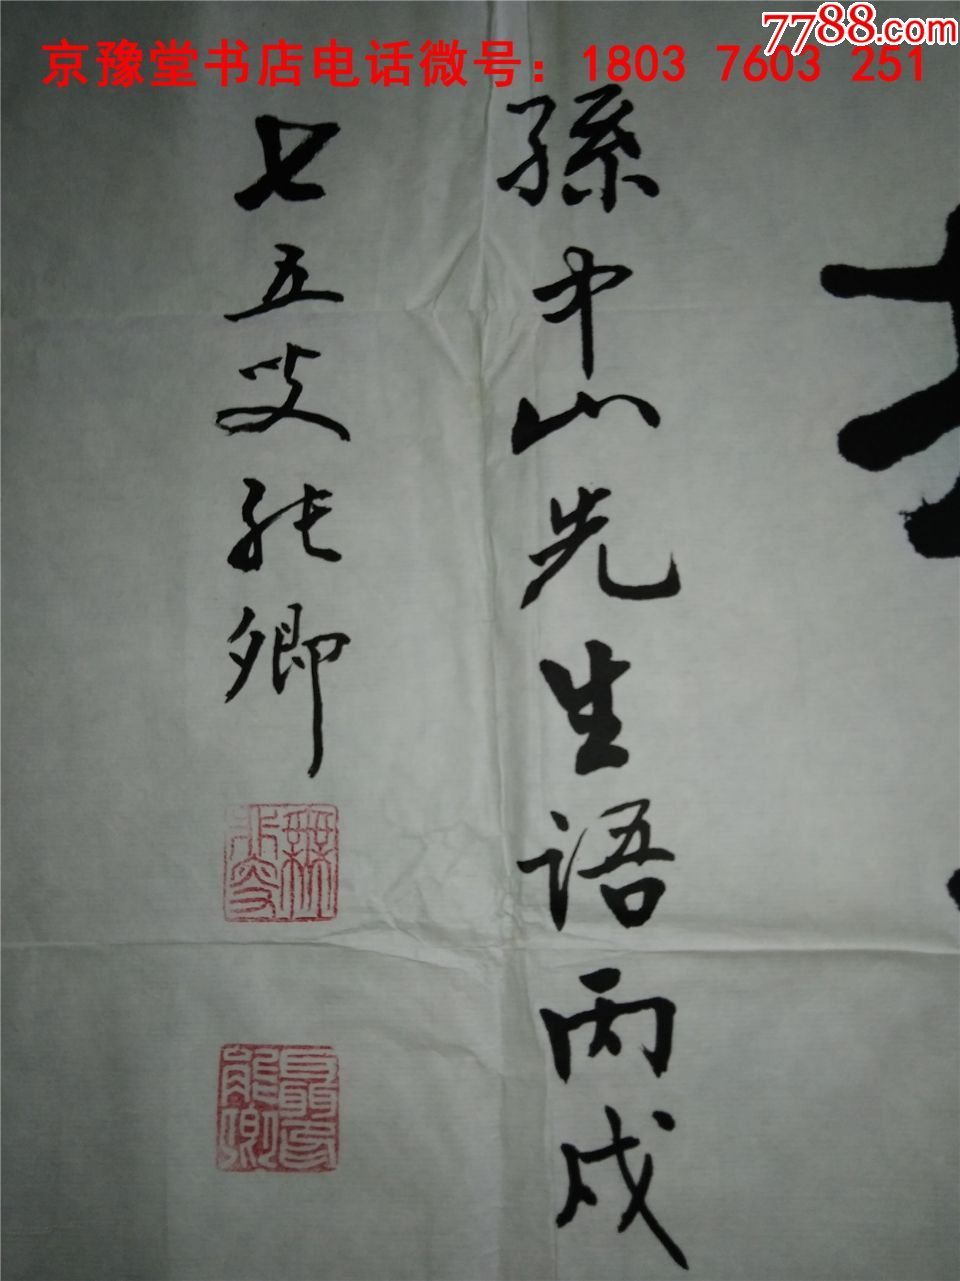 7788.com
京豫堂书店电话微号：1803 7603 251
孫中山先生語丙戌
七五叟能卿